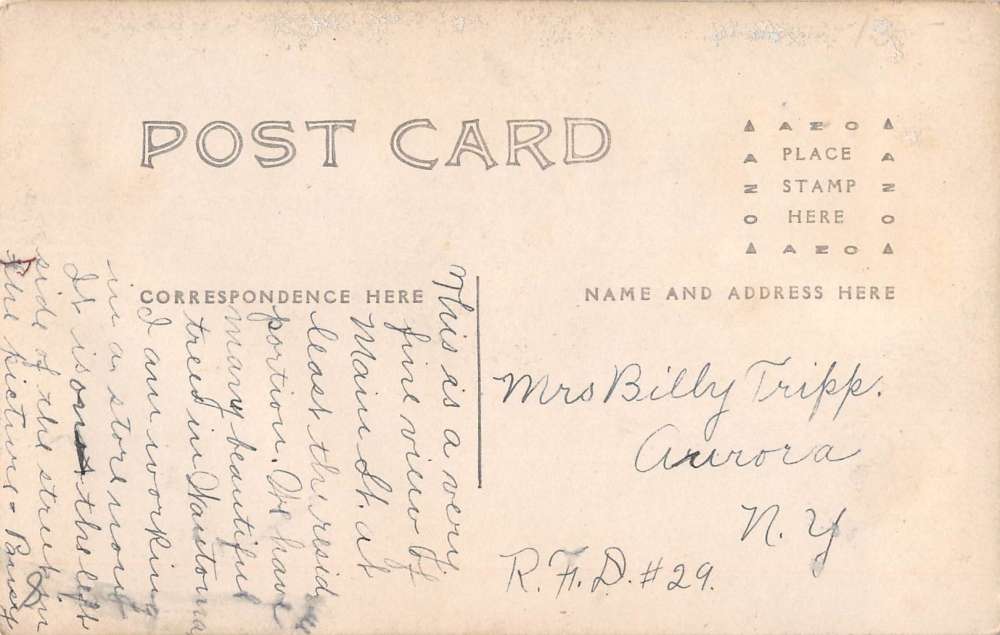 13
POST CARD
AZO
PLACE
STAMP
HERE
AZO
CORRESPONDENCE HERE
NAME AND ADDRESS HERE
This is a very
fine view of
Main St. at
least the resid
portion. We have
many beautiful
trees in Wautoma
I am working
in a store now
It is on the left
side of the street in
the picture -
Mrs Billy Tripp.
Aurora
N. Y
R. F. D. #29.